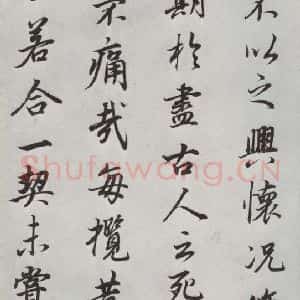 不以之興懷況
期於盡古人云死
不痛哉每攬昔
若合一契未嘗
Shufawang.CN